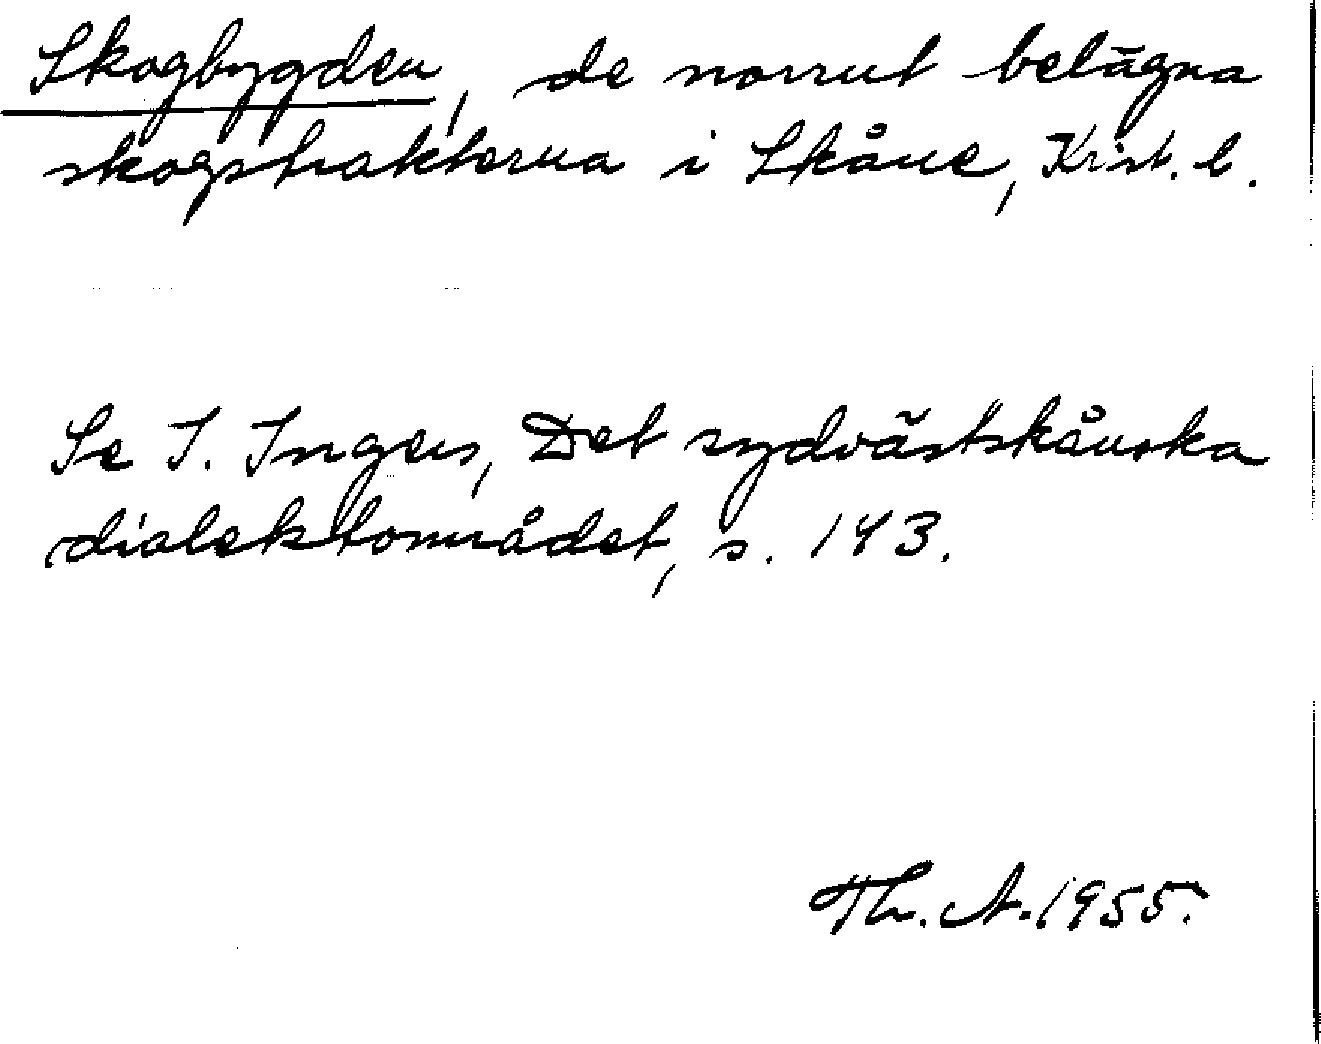 Skogbygden, de norrut belägna
skogstrakterna i Skåne, Krist. l.
Se I. Ingers, Det sydvästskånska
dialektområdet, s. 143.
Th. A. 1955.